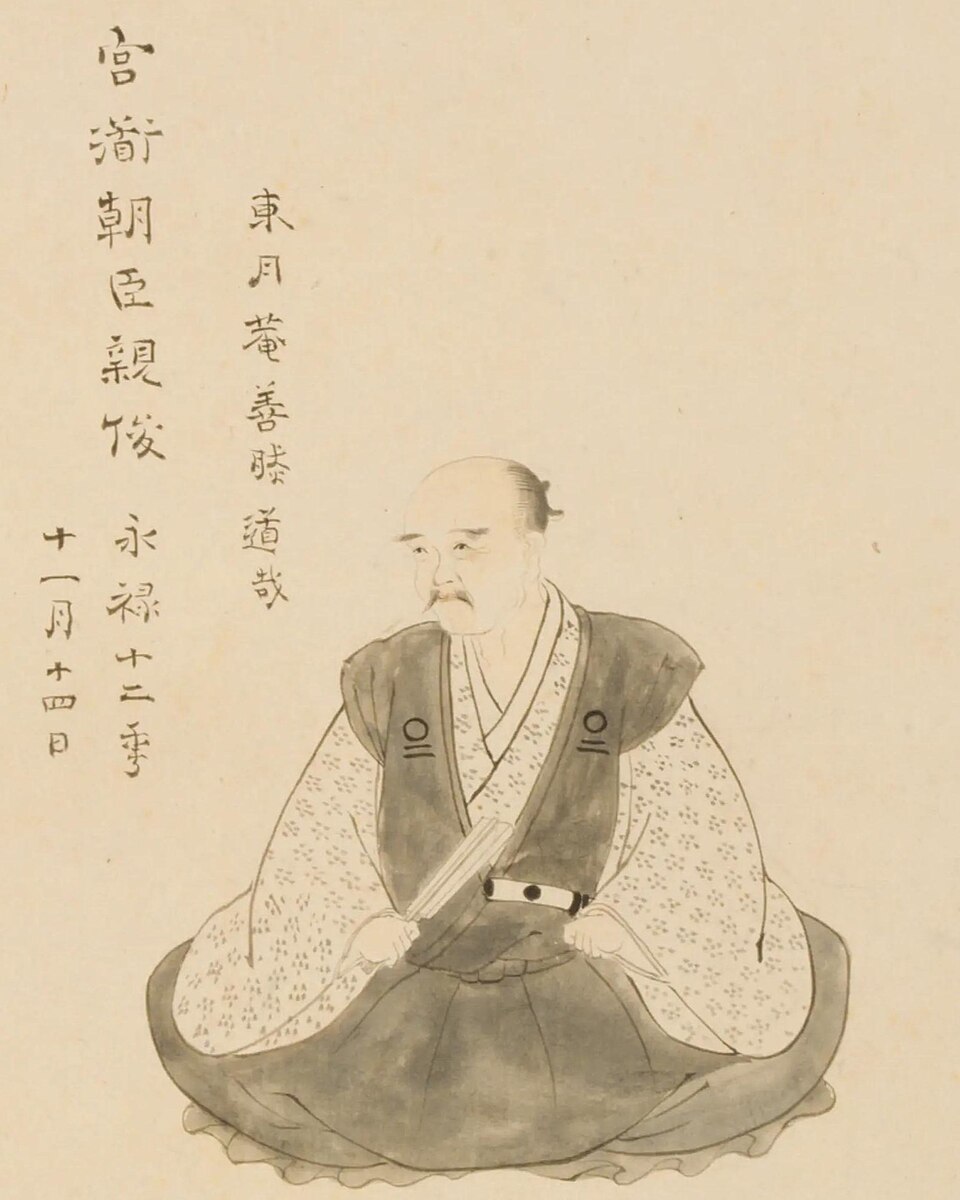 東月菴善勝道哉
宮衜朝臣親俊 永禄十二年
十一月十四日